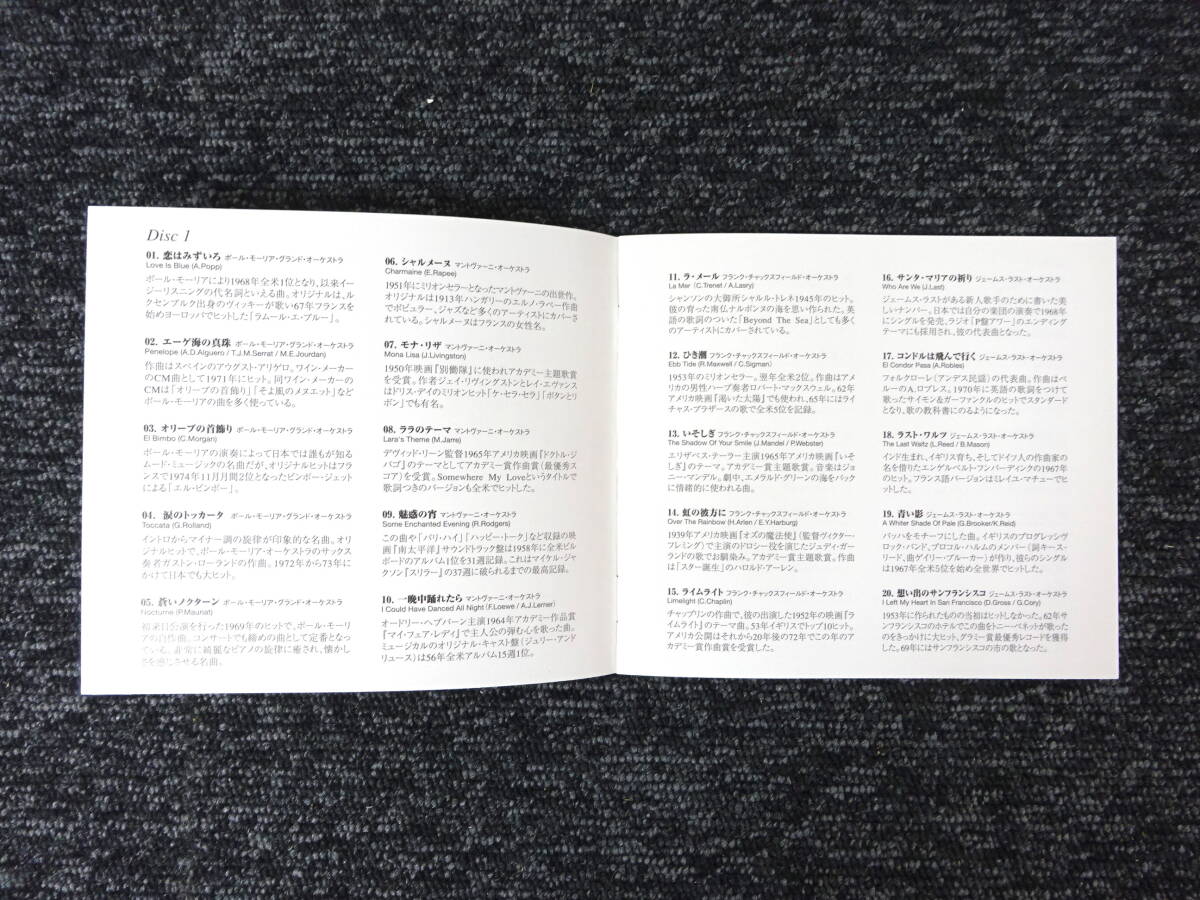 Disc 1
01. 恋はみずいろ ポール・モーリア・グランド・オーケストラ
Love Is Blue (A.Popp)
ポール・モーリアにより1968年全米1位となり、以来イ
ージーリスニングの代名詞といえる曲。オリジナルは、ル
クセンブルク出身のヴィッキーが歌い67年フランスを
始めヨーロッパでヒットした「ラムール・エ・ブルー」。
02. エーゲ海の真珠 ポール・モーリア・グランド・オーケストラ
Penelope (A.D.Alguero / T.J.M.Serrat / M.E.Jourdan)
作曲はスペインのアウグスト・アリゲロ。ワイン・メーカー
のCM曲として1971年にヒット。同ワイン・メーカーの
CMは「オリーブの首飾り」「そよ風のメヌエット」など
ポール・モーリアの曲を多く使っている。
03. オリーブの首飾り ポール・モーリア・グランド・オーケストラ
El Bimbo (C.Morgan)
ポール・モーリアの演奏によって日本では誰もが知る
ムード・ミュージックの名曲だが、オリジナルヒットはフラ
ンスで1974年11月月間2位となったビンボー・ジェット
による「エル・ビンボー」。
04. 涙のトッカータ ポール・モーリア・グランド・オーケストラ
Toccata (G.Rolland)
イントロからマイナー調の旋律が印象的な名曲。オリ
ジナルヒットで、ポール・モーリア・オーケストラのサックス
奏者ガストン・ローランドの作曲。1972年から73年に
かけて日本でも大ヒット。
05. 蒼いノクターン ポール・モーリア・グランド・オーケストラ
Nocturne (P.Mauriat)
初来日公演を行った1969年のヒットで、ポール・モーリ
アの自作曲。コンサートでも締めの曲として定番となっ
ている。非常に綺麗なピアノの旋律に癒され、懐かし
さを感じさせる名曲。
06. シャルメーヌ マントヴァーニ・オーケストラ
Charmaine (E.Rapee)
1951年にミリオンセラーとなったマントヴァーニの出世作。
オリジナルは1913年ハンガリーのエルノ・ラペー作曲
でポピュラー、ジャズなど多くのアーティストにカバーさ
れている。シャルメーヌはフランスの女性名。
07. モナ・リザ マントヴァーニ・オーケストラ
Mona Lisa (J.Livingston)
1950年映画『別働隊』に使われアカデミー主題歌賞
を受賞。作者ジェイ・リヴィングストンとレイ・エヴァンス
はドリス・デイのミリオンヒット「ケ・セラ・セラ」「ボタンとリ
ボン」でも有名。
08. ララのテーマ マントヴァーニ・オーケストラ
Lara's Theme (M.Jarre)
デヴィッド・リーン監督1965年アメリカ映画『ドクトル・ジ
バゴ』のテーマとしてアカデミー賞作曲賞（最優秀ス
コア）を受賞。Somewhere My Loveというタイトルで
歌詞つきのバージョンも全米でヒットした。
09. 魅惑の宵 マントヴァーニ・オーケストラ
Some Enchanted Evening (R.Rodgers)
この曲や「バリ・ハイ」「ハッピー・トーク」など収録の映
画『南太平洋』サウンドトラック盤は1958年に全米ビル
ボードのアルバム1位を31週記録。これはマイケル・ジャ
クソン『スリラー』の37週に破られるまでの最高記録。
10. 一晩中踊れたら マントヴァーニ・オーケストラ
I Could Have Danced All Night (F.Loewe / A.J.Lerner)
オードリー・ヘプバーン主演1964年アカデミー作品賞
『マイ・フェア・レディ』で主人公の弾む心を歌った曲。
ミュージカルのオリジナル・キャスト盤（ジュリー・アンド
リュース）は56年全米アルバム15週1位。
11. ラ・メール フランク・チャックスフィールド・オーケストラ
La Mer (C.Trenet / A.Lasry)
シャンソンの大御所シャルル・トレネ1945年のヒット。
彼の育った南仏ナルボンヌの海を思い作られた。英
語の歌詞のついた「Beyond The Sea」としても多く
のアーティストにカバーされている。
12. ひき潮 フランク・チャックスフィールド・オーケストラ
Ebb Tide (R.Maxwell / C.Sigman)
1953年のミリオンセラー。翌年全米2位。作曲はアメ
リカの男性ハープ奏者ロバート・マックスウェル。62年
アメリカ映画『渇いた太陽』でも使われ、65年にはライ
チャス・ブラザースの歌で全米5位を記録。
13. いそしぎ フランク・チャックスフィールド・オーケストラ
The Shadow Of Your Smile (J.Mandel / P.Webster)
エリザベス・テーラー主演1965年アメリカ映画『いそ
しぎ』のテーマ。アカデミー賞主題歌賞。音楽はジョ
ニー・マンデル。劇中、エメラルド・グリーンの海をバック
に情緒的に使われる曲。
14. 虹の彼方に フランク・チャックスフィールド・オーケストラ
Over The Rainbow (H.Arlen / E.Y.Harburg)
1939年アメリカ映画『オズの魔法使』（監督ヴィクター・
フレミング）で主演のドロシー役を演じたジュディ・ガー
ランドの歌でお馴染み。アカデミー賞主題歌賞。作曲
は「スター誕生」のハロルド・アーレン。
15. ライムライト フランク・チャックスフィールド・オーケストラ
Limelight (C.Chaplin)
チャップリンの作曲で、彼の出演した1952年の映画『ラ
イムライト』のテーマ曲。53年イギリスでトップ10ヒット。
アメリカ公開はそれから20年後の72年でこの年のア
カデミー賞作曲賞を受賞した。
16. サンタ・マリアの祈り ジェームス・ラスト・オーケストラ
Who Are We (J.Last)
ジェームス・ラストがある新人歌手のために書いた美
しいナンバー。日本では自分の楽団の演奏で1968年
にシングルを発売、ラジオ「P盤アワー」のエンディング
テーマにも採用され、彼の代表曲となった。
17. コンドルは飛んで行く ジェームス・ラスト・オーケストラ
El Condor Pasa (A.Robles)
フォルクローレ（アンデス民謡）の代表曲。作曲はペ
ルーのA.ロブレス。1970年に英語の歌詞をつけて
歌ったサイモン&ガーファンクルのヒットでスタンダード
となり、歌の教科書にのるようになった。
18. ラスト・ワルツ ジェームス・ラスト・オーケストラ
The Last Waltz (L.Reed / B.Mason)
インド生まれ、イギリス育ち、そしてドイツ人の作曲家の
名を借りたエンゲルベルト・フンパーディンクの1967年
のヒット。フランス語バージョンはミレイユ・マチューでヒ
ットした。
19. 青い影 ジェームス・ラスト・オーケストラ
A Whiter Shade Of Pale (G.Brooker/K.Reid)
バッハをモチーフにした曲。イギリスのプログレッシヴ
ロック・バンド、プロコル・ハルムのメンバー（詞キース・
リード、曲ゲイリー・ブルーカー）が作り、彼らのシングル
は1967年全米5位を始め全世界でヒットした。
20. 想い出のサンフランシスコ ジェームス・ラスト・オーケストラ
I Left My Heart In San Francisco (D.Gross / G.Cory)
1953年に作られたものの当初はヒットしなかった。62年サ
ンフランシスコのホテルでこの曲をトニー・ベネットが歌った
のをきっかけに大ヒット、グラミー賞最優秀レコードを獲得
した。69年にはサンフランシスコの市の歌となった。